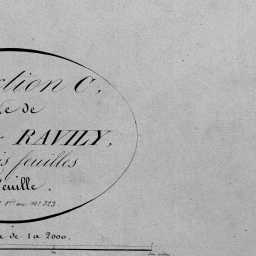 ction C,
de
RAVILY,
is feuilles
euille.
1er au No 323.
de 1 a 2000.